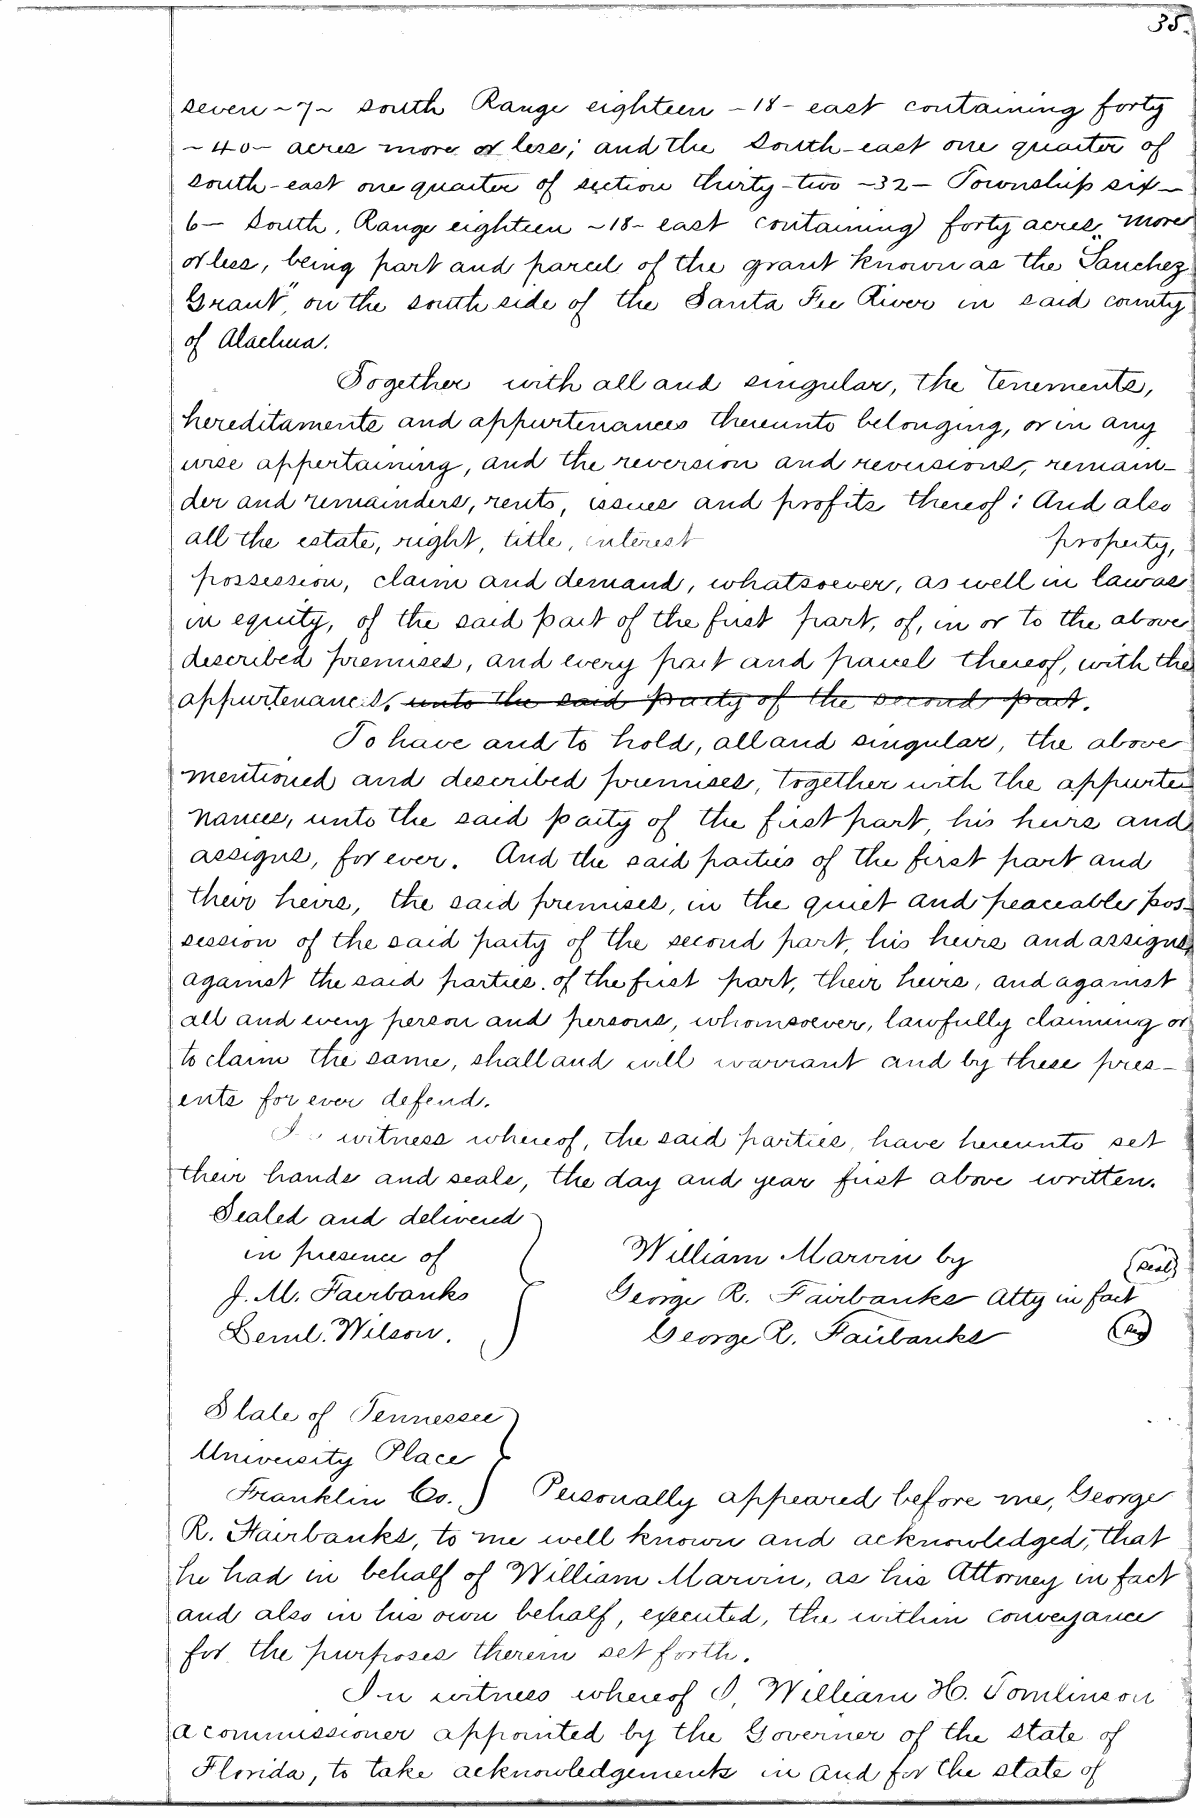 35.
seven ~7~ south Range eighteen -18- east containing forty
-40- acres more or less; and the South-east one quarter of
south-east one quarter of section thirty-two -32- Township six-
6- South, Range eighteen -18- east containing forty acres, more
or less, being part and parcel of the grant known as the "Sanchez
Grant", on the south side of the Santa Fee River in said county
of Alachua.
Together with all and singular, the tenements,
hereditaments and appurtenances thereunto belonging, or in any
wise appertaining, and the reversion and reversions, remain-
der and remainders, rents, issues and profits thereof: And also
all the estate, right, title, interest property,
possession, claim and demand, whatsoever, as well in law as
in equity, of the said part of the first part, of, in or to the above
described premises, and every part and parcel thereof, with the
appurtenances. unto the said party of the second part.
To have and to hold, all and singular, the above
mentioned and described premises, together with the appurte
nances, unto the said party of the first part, his heirs and
assigns, for ever. And the said parties of the first part and
their heirs, the said premises, in the quiet and peaceable pos-
session of the said party of the second part, his heirs and assigns,
against the said parties. of the first part, their heirs, and against
all and every person and persons, whomsoever, lawfully claiming or
to claim the same, shall and will warrant and by these pres-
ents for ever defend.
In witness whereof, the said parties, have hereunto set
their hands and seals, the day and year first above written.
Sealed and delivered
in presence of
J. M. Fairbanks
Leml. Wilson.
William Marvin by
George R. Fairbanks Atty in fact
Seal
George R. Fairbanks
Seal
State of Tennessee
University Place
Franklin Co. Personally appeared before me, George
R. Fairbanks, to me well known and acknowledged, that
he had in behalf of William Marvin, as his Attorney in fact
and also in his own behalf, executed, the within conveyance
for the purposes therein set forth.
In witness whereof I, William H. Tomlinson
a commissioner appointed by the Governer of the state of
Florida, to take acknowledgements in and for the state of